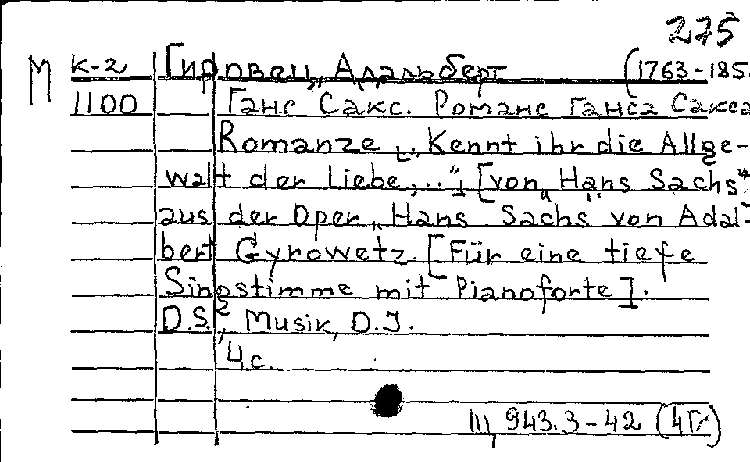 275
М к-2 Гировец, Адальберт (1763-185
1100 Ганс Сакс. Романс Ганса Сакса
Romanze „Kennt ihr die Allge-
walt der Liebe,.." [von „Hans Sachs"
aus der Oper „Hans Sachs von Adal-
bert Gyrowetz. [Für eine tiefe
Singstimme mit Pianoforte].
D.S., Musik, D.J.
4с.
943.3-42